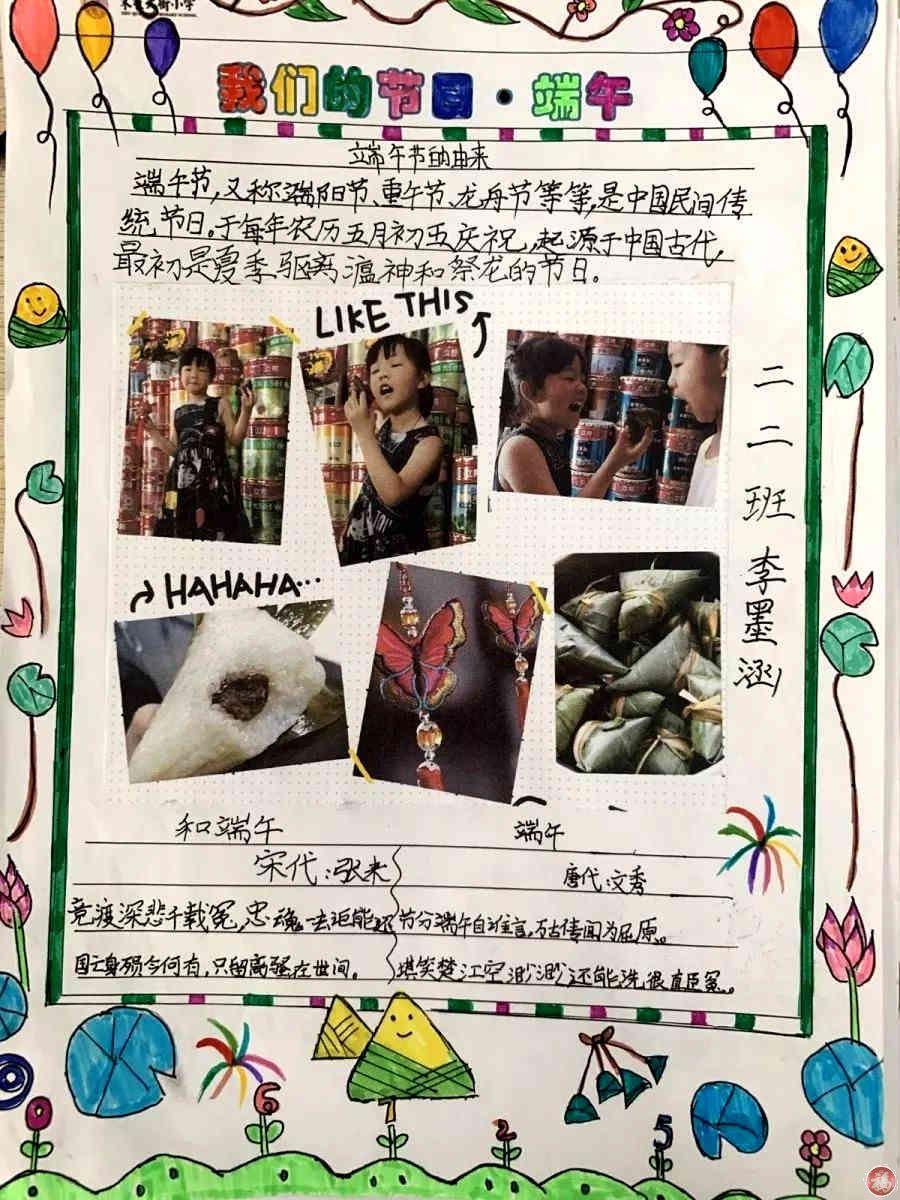 我们的节日·端午
端午节的由来
端午节,又称端阳节、重午节、龙舟节等等,是中国民间传
统节日。于每年农历五月初五庆祝,起源于中国古代,
最初是夏季驱离瘟神和祭龙的节日。
LIKE THIS
HAHAHA...
二二班李墨涵
和端午
宋代:张耒
竞渡深悲千载冤,忠魂一去讵能还
国亡身殒今何有,只留离骚在世间。
端午
唐代:文秀
节分端午自谁言,万古传闻为屈原。
堪笑楚江空渺渺还能洗很直臣冤。
6
1
2
5
福